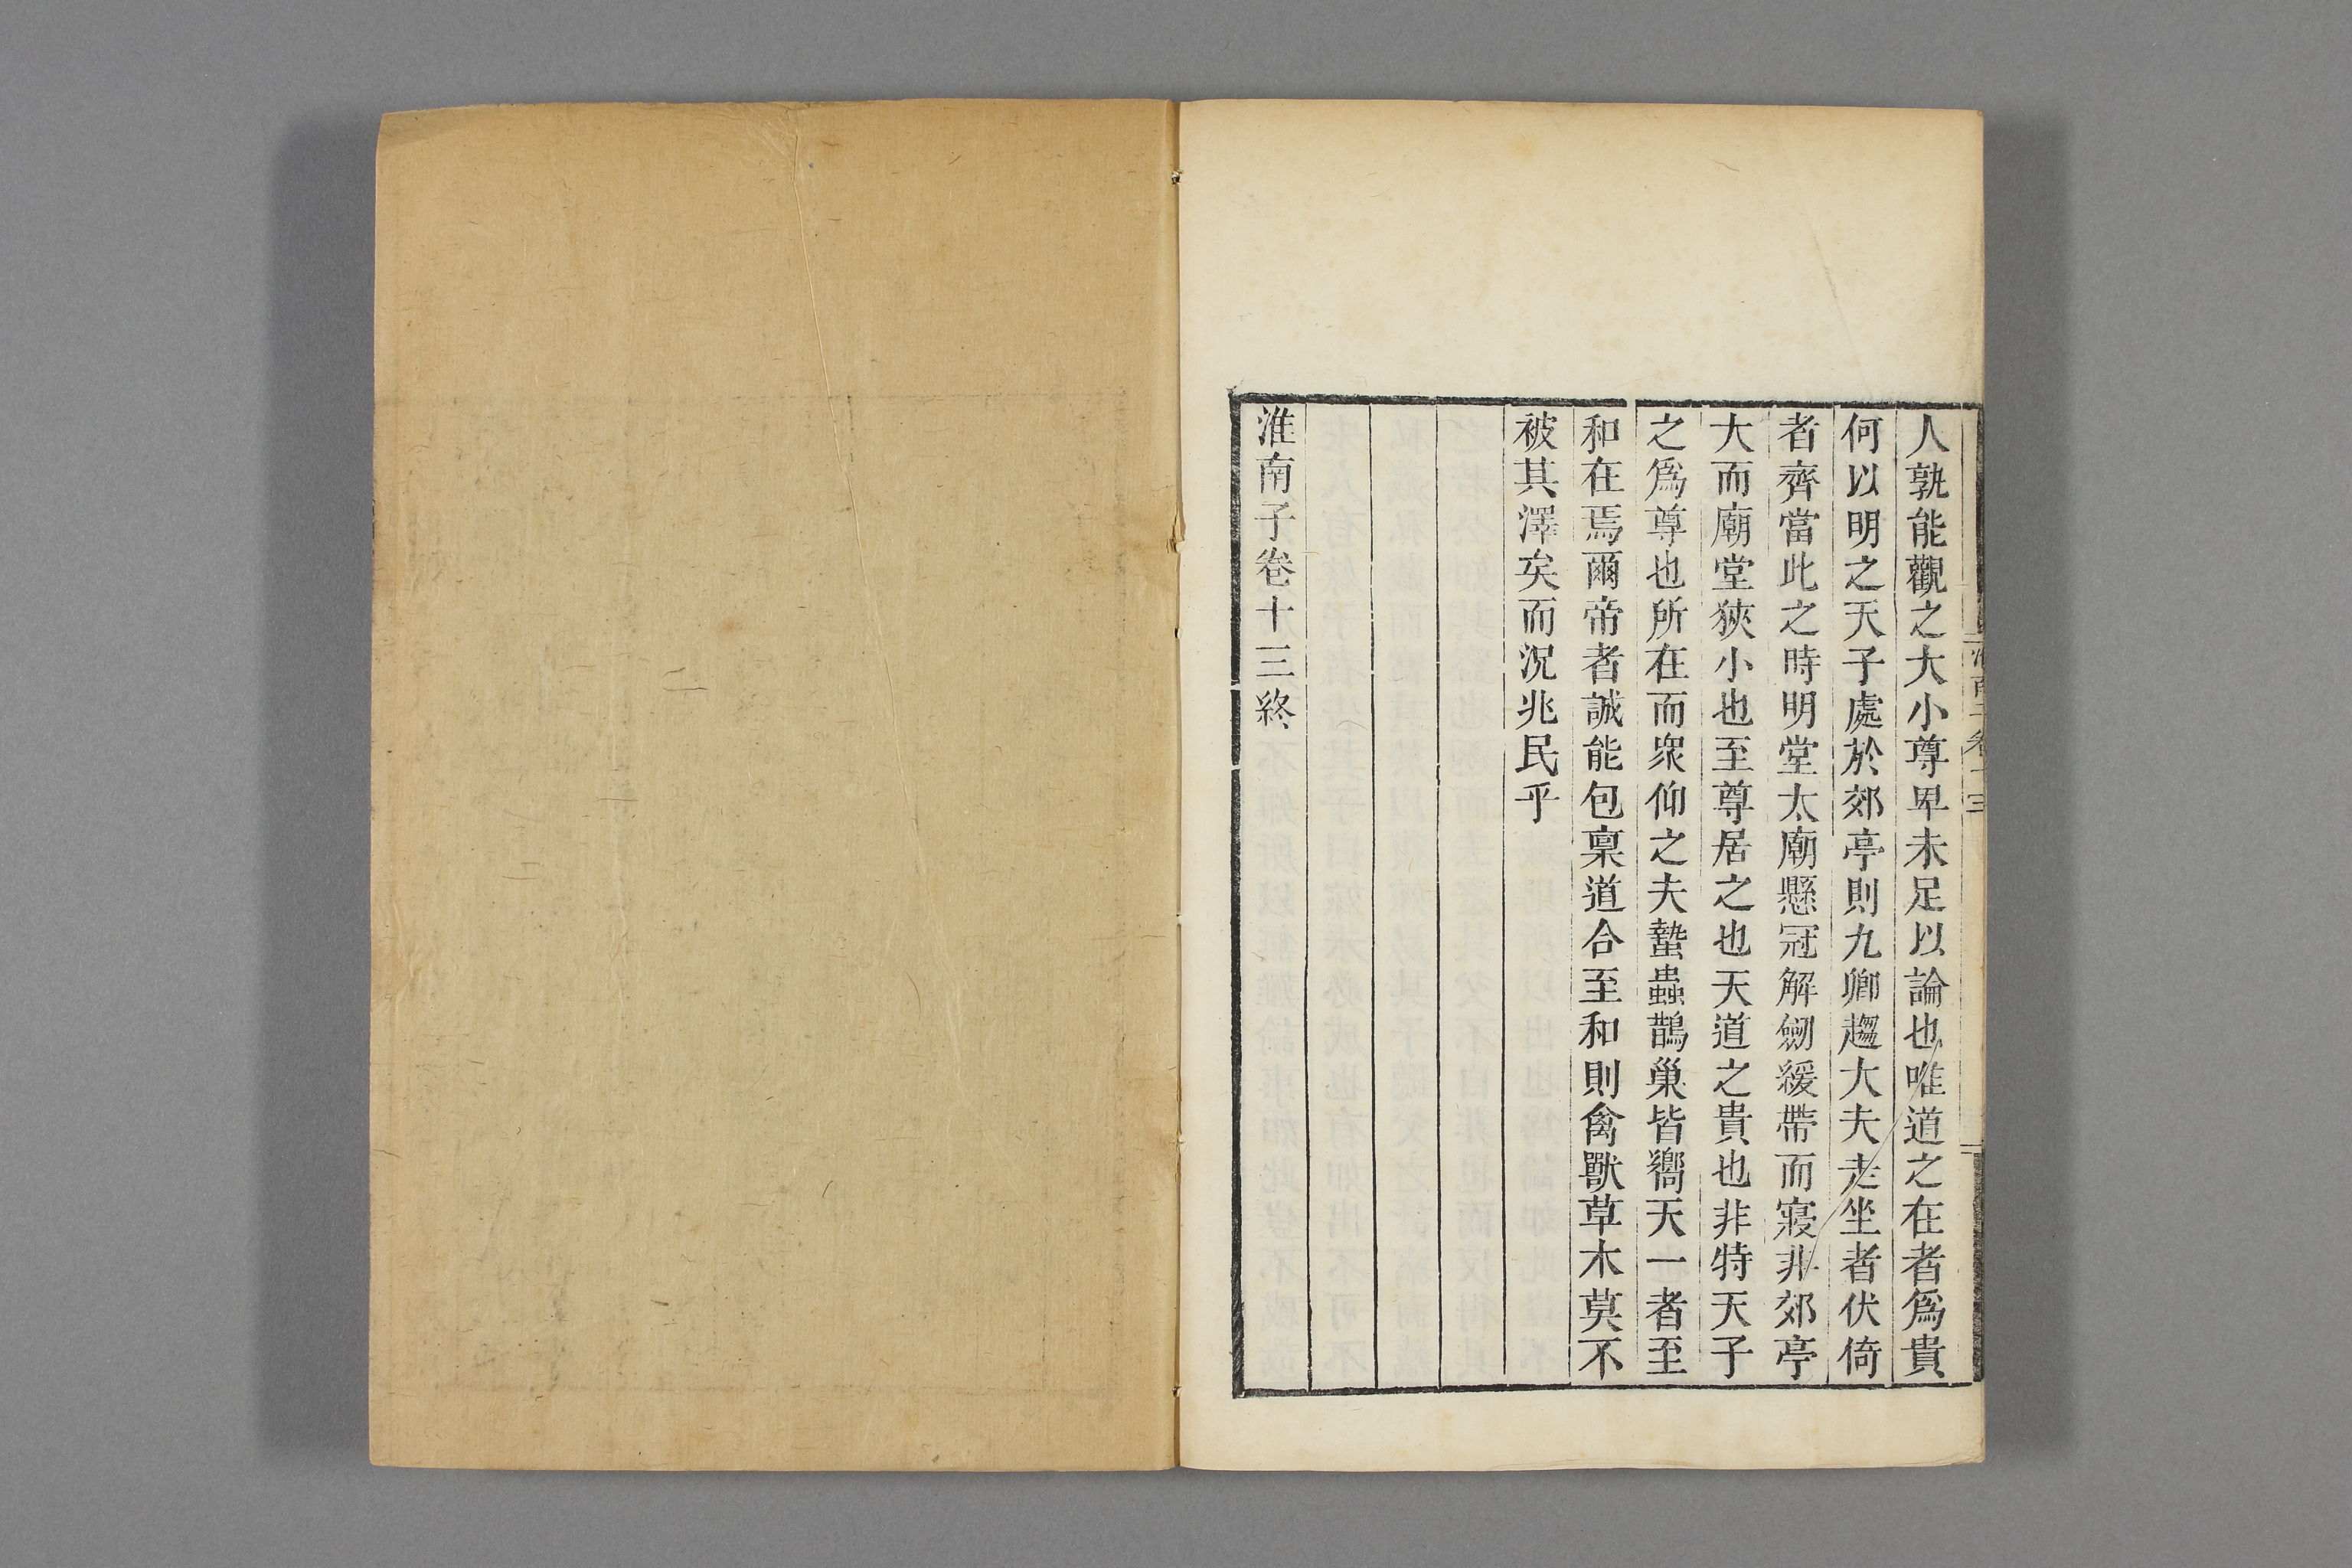 人孰能觀之大小尊卑未足以論也唯道之在者爲貴
何以明之天子處於郊亭則九卿趨大夫走坐者伏倚
者齊當此之時明堂太廟懸冠解劒緩帶而寢非郊亭
大而廟堂狹小也至尊居之也天道之貴也非特天子
之爲尊也所在而衆仰之夫蟄蟲鵲巢皆嚮天一者至
和在焉爾帝者誠能包稟道合至和則禽獸草木莫不
被其澤矣而況兆民乎
淮南子卷十三終